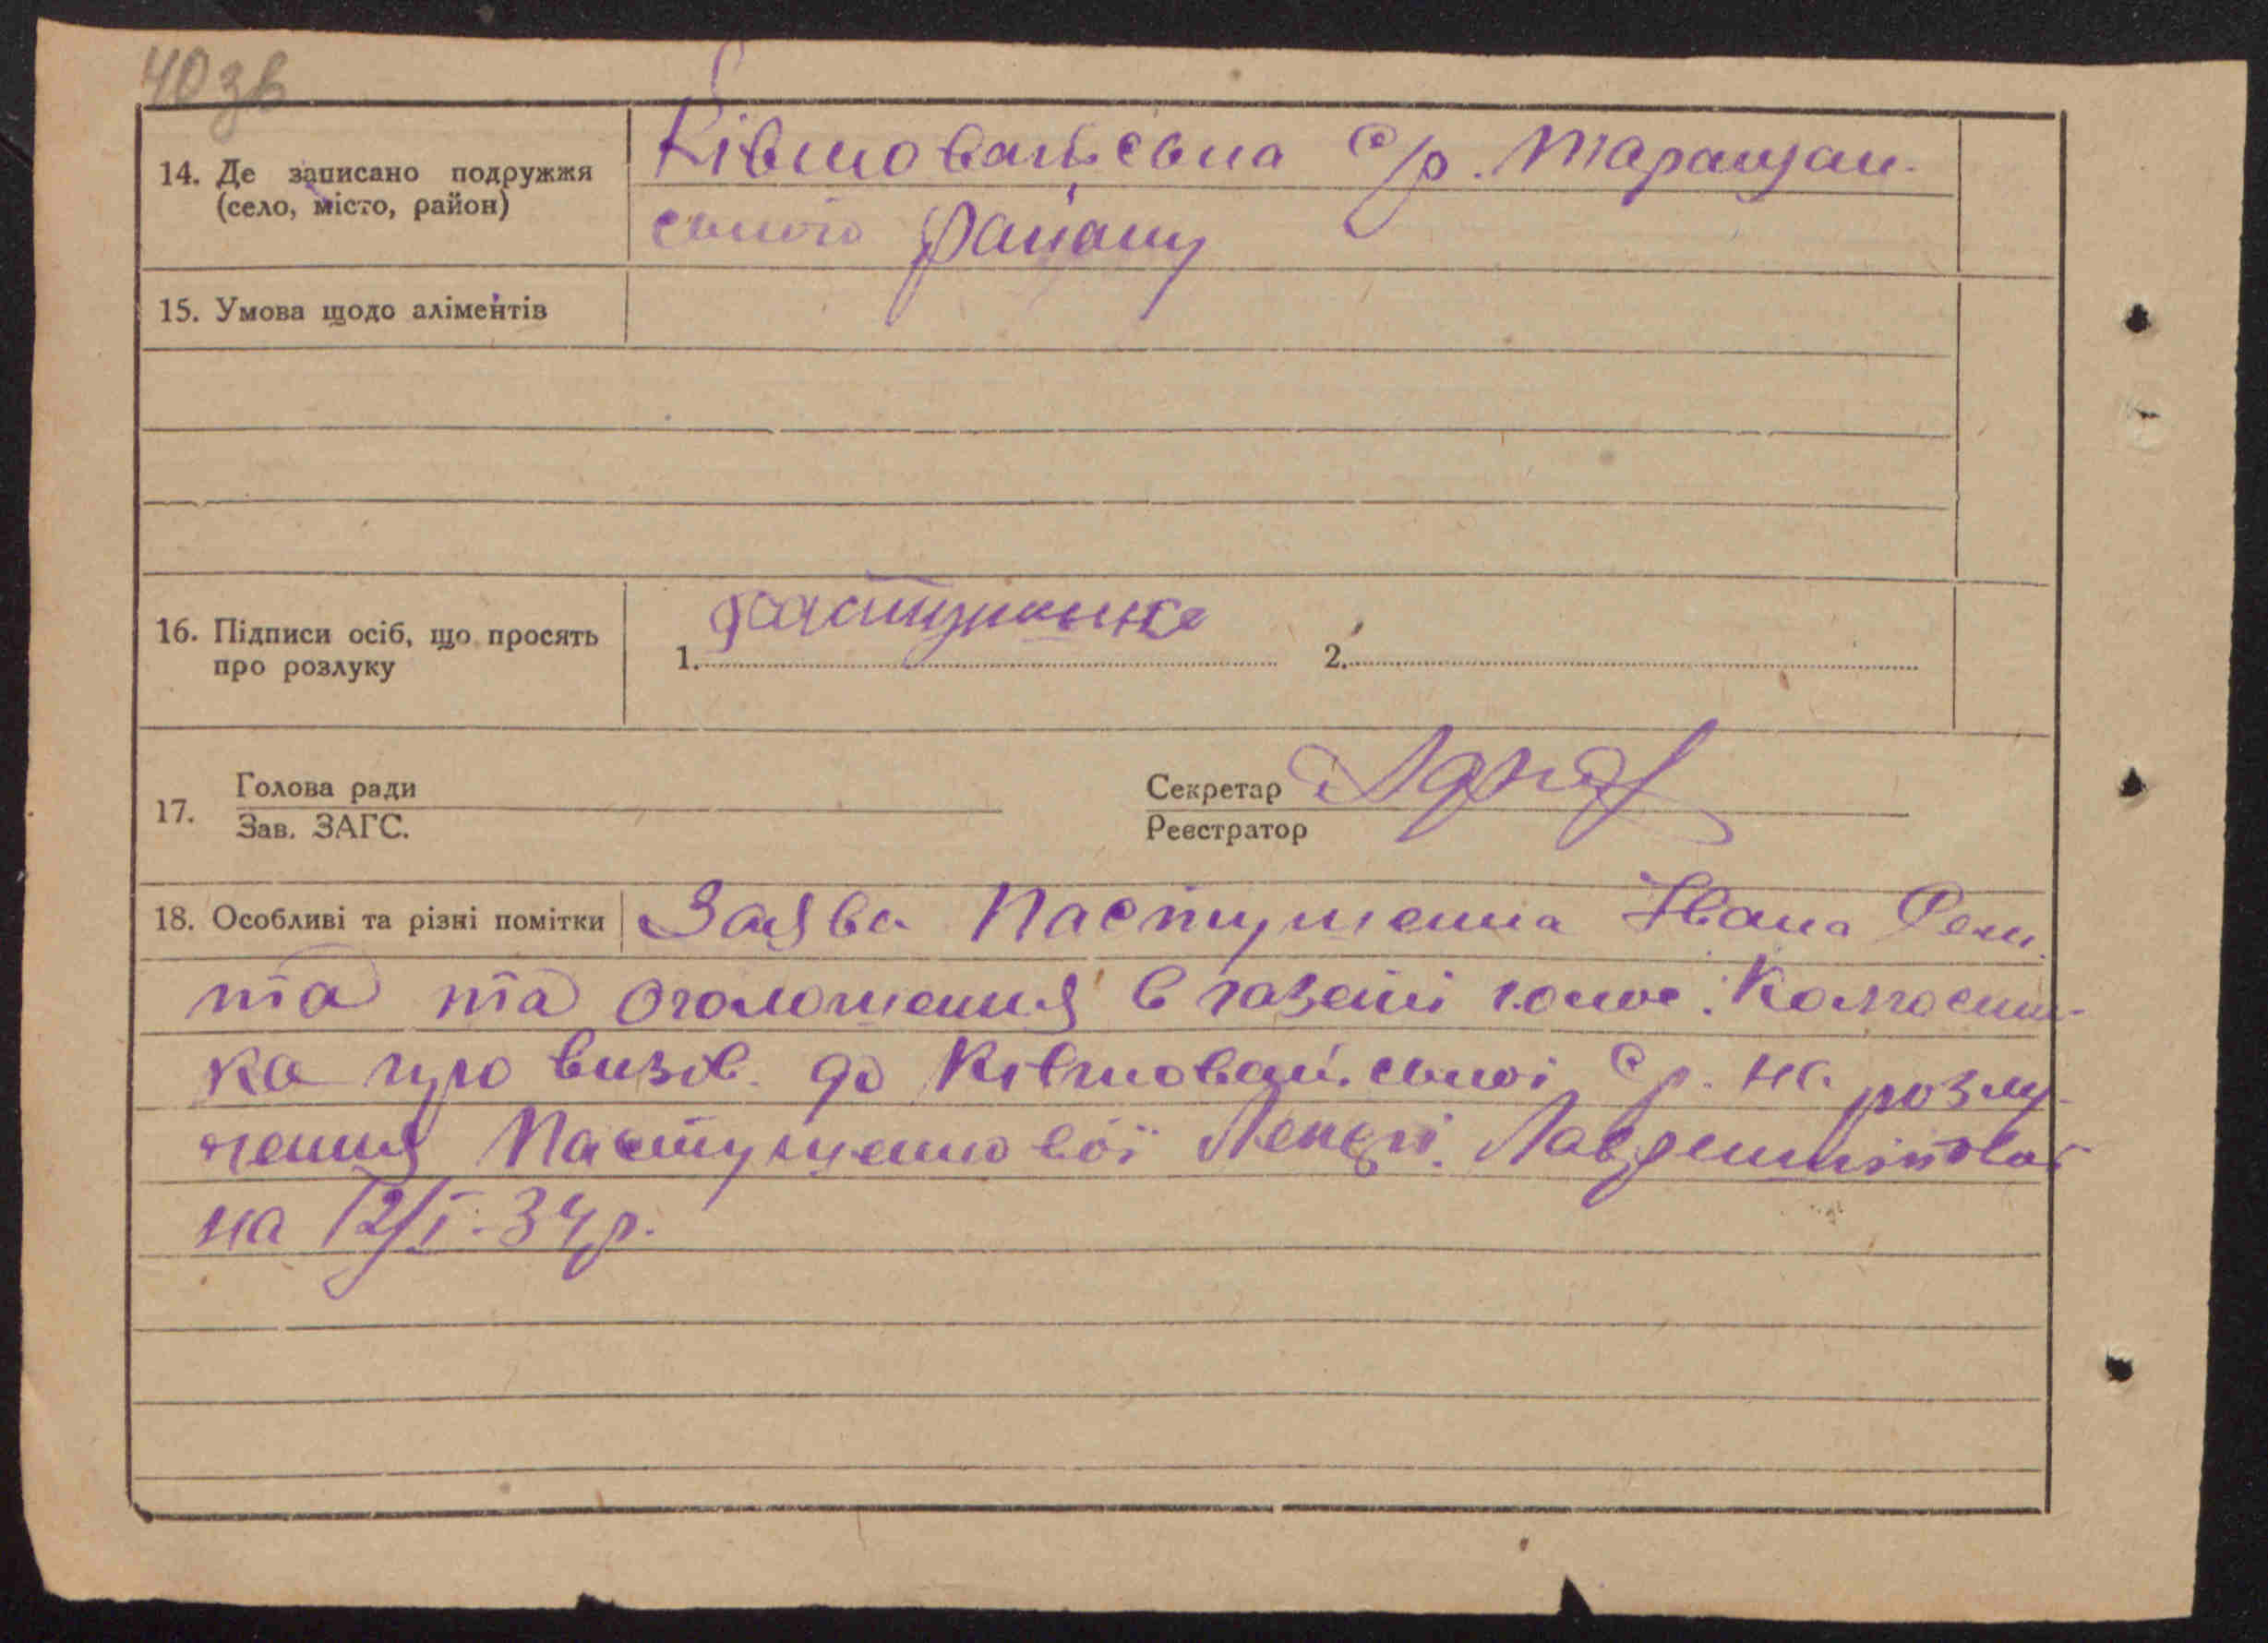 40 зв
14. Де записано подружжя
(село, місто, район)
Ківшовацьська с/р. Таращан-
ського району
15. Умова щодо аліментів
16. Підписи осіб, що просять
про розлуку
1. Пастушенко
2.
17. Голова ради
Зав. ЗАГС.
Секретар
Реєстратор
18. Особливі та різні помітки
Заява Пастушенка Івана
та та оголошення в газеті Колгоспни-
ка про визов. до Ківшовац. ської с/р. на розлу-
чення Пастушенкової
на 12/I-34р.